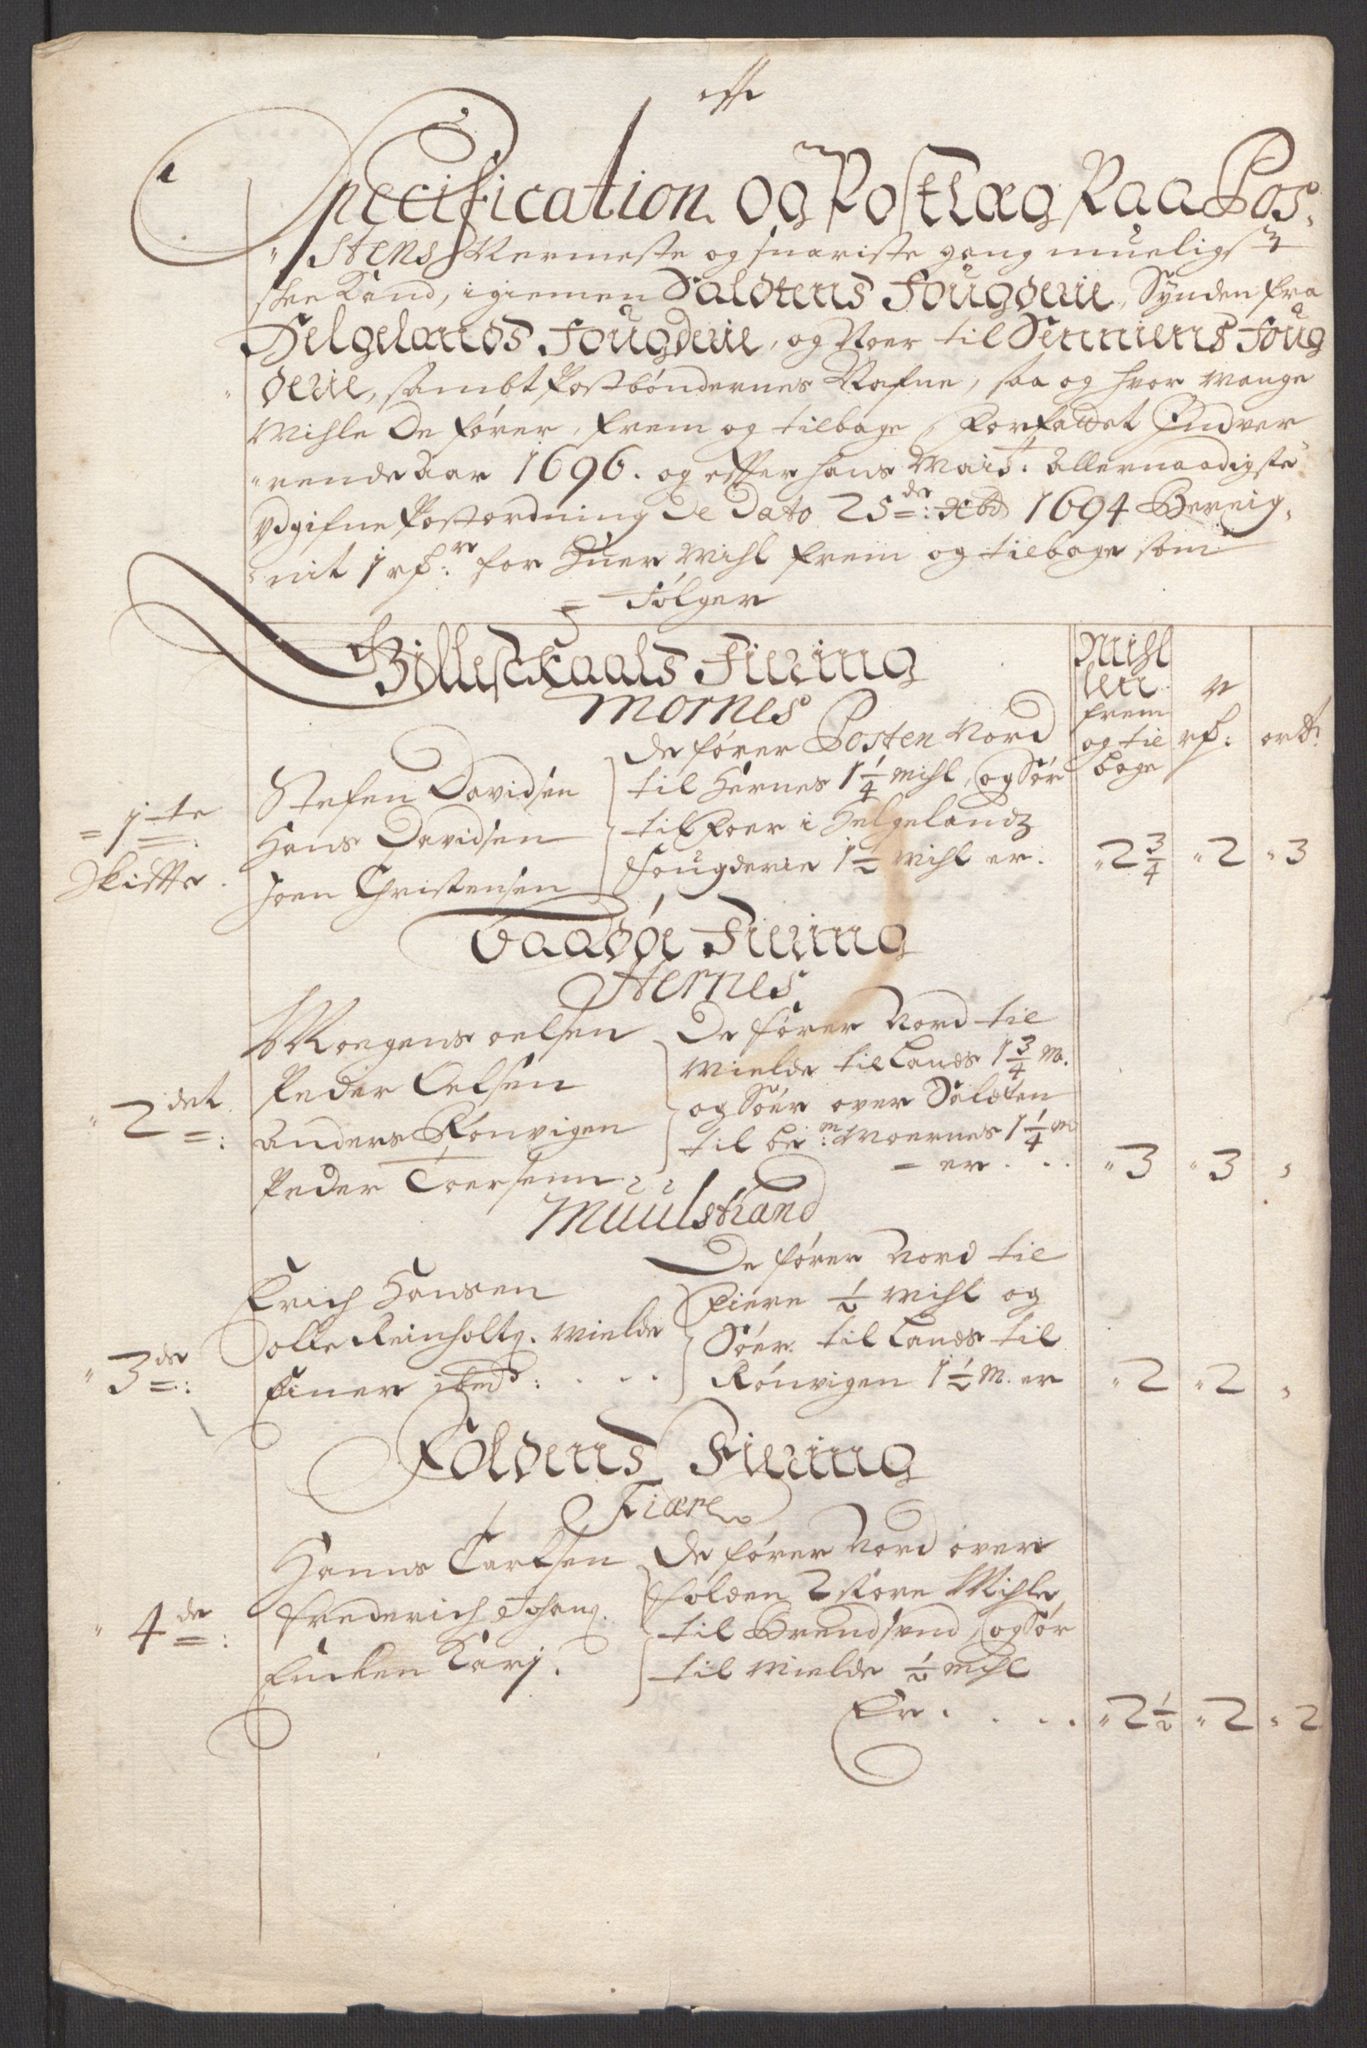 Specification og Postlæg Paa Pos-
stens Nermeste og snariste gang mueligst
skee Kand, igiemen Saldtens Fougderie, Synden fra
Helgelands Fougderie, og Noer til Senniens Foug
derie, sambt Postbøndernes Nafne, saa og hvor Mange
Mihle De fører, frem og tilbage, Forfattet Indver-
rende Aar 1696. og effter hans Maist: Allernaadigste
Vdgifne Postordning De Dato 25de: xbr 1694 Bereig-
nit 1 rdr: for Huer Mihl frem og tilbage som
Følger
Gilleskaals Fiering
Mornes
Mihl
len
frem
og til
bage
rdr:
ort:
1te
Skiffte.
Stefen Davidsen
Hans Davidsen
Joen Christensen
De fører Posten Nord
til Hernes 1 1/4 mihl, og Sør
til Roer i Helgelandz
Fougderie 1 1/2 Mihl er.
2 3/4 2 3
Baadøe Fiering
Hernes
2det:
Mogens oelsen
Peder Oelsen
Anders Rønvigen
Peder Toersenn
De fører Nord til
Mielde til Lands 1 3/4 M.
og Søer over Saldten
til bem: Moernes 1 1/4 m
er . . .
3 3
Muulstrand
3de:
Erich Hansen
Olle Reinholtz. Mielde
Einer ibed: . . . .
De fører Nord til
Fiere 1/2 Mihl og
Søer til Lands til
Rønvigen 1 1/2 M. er
2 2
Foldens Fiering
Fiære
4de:
Hanns Carlsen
Frederich Johans.
Encken Karj.
De fører Nord over
folden 2 store Mihle
til Brendsund, og Sør
til Mielde 1/2 Mihl
Er . . . .
2 1/2 2 2